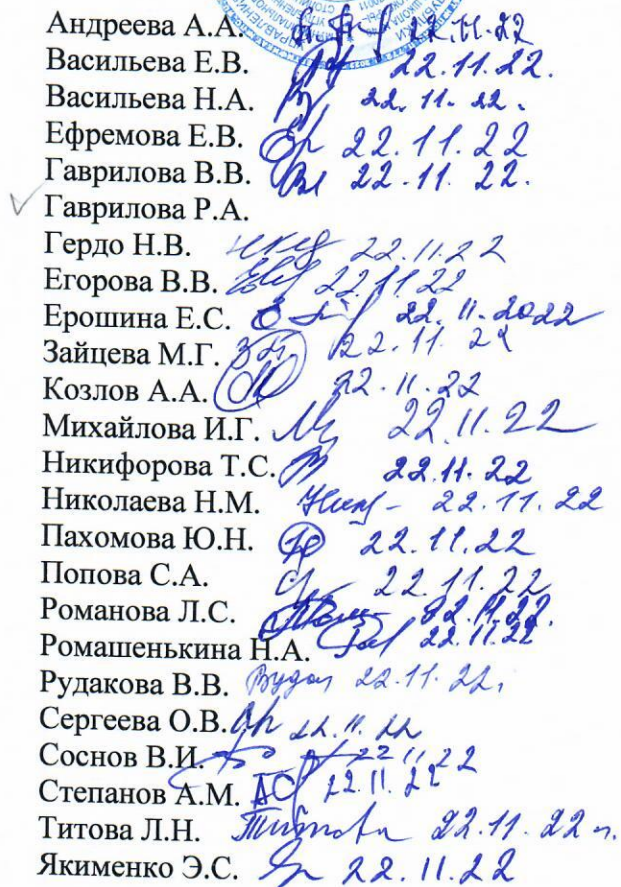 Андреева А.А. 22.11.22
Васильева Е.В. 22.11.22.
Васильева Н.А. 22.11.22.
Ефремова Е.В. 22.11.22
Гаврилова В.В. 22.11.22.
Гаврилова Р.А.
Гердо Н.В. 22.11.22
Егорова В.В. 22.11.22
Ерошина Е.С. 22.11.2022
Зайцева М.Г. 22.11.22
Козлов А.А. 22.11.22
Михайлова И.Г. 22.11.22
Никифорова Т.С. 22.11.22
Николаева Н.М. 22.11.22
Пахомова Ю.Н. 22.11.22
Попова С.А. 22.11.22
Романова Л.С. 22.11.22.
Ромашенькина Н.А. 22.11.22
Рудакова В.В. 22.11.22.
Сергеева О.В. 22.11.22
Соснов В.И. 22.11.22
Степанов А.М. 22.11.22
Титова Л.Н. Титова 22.11.22 г.
Якименко Э.С. 22.11.22